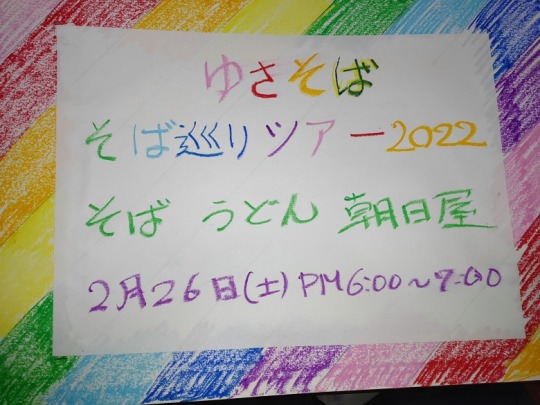 ゆさそば
そば巡りツアー2022
そば うどん 朝日屋
2月26日(土) PM6:00~9:00